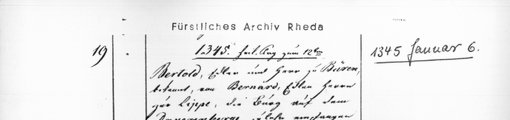 Fürstliches Archiv Rheda
19
1345. zum 12ten
1345 Januar 6.
Bertold, Edler und Herr zu Büren,
bekennt, von Bernard, Edlen Herrn
zur Lippe, die Burg auf dem
empfangen